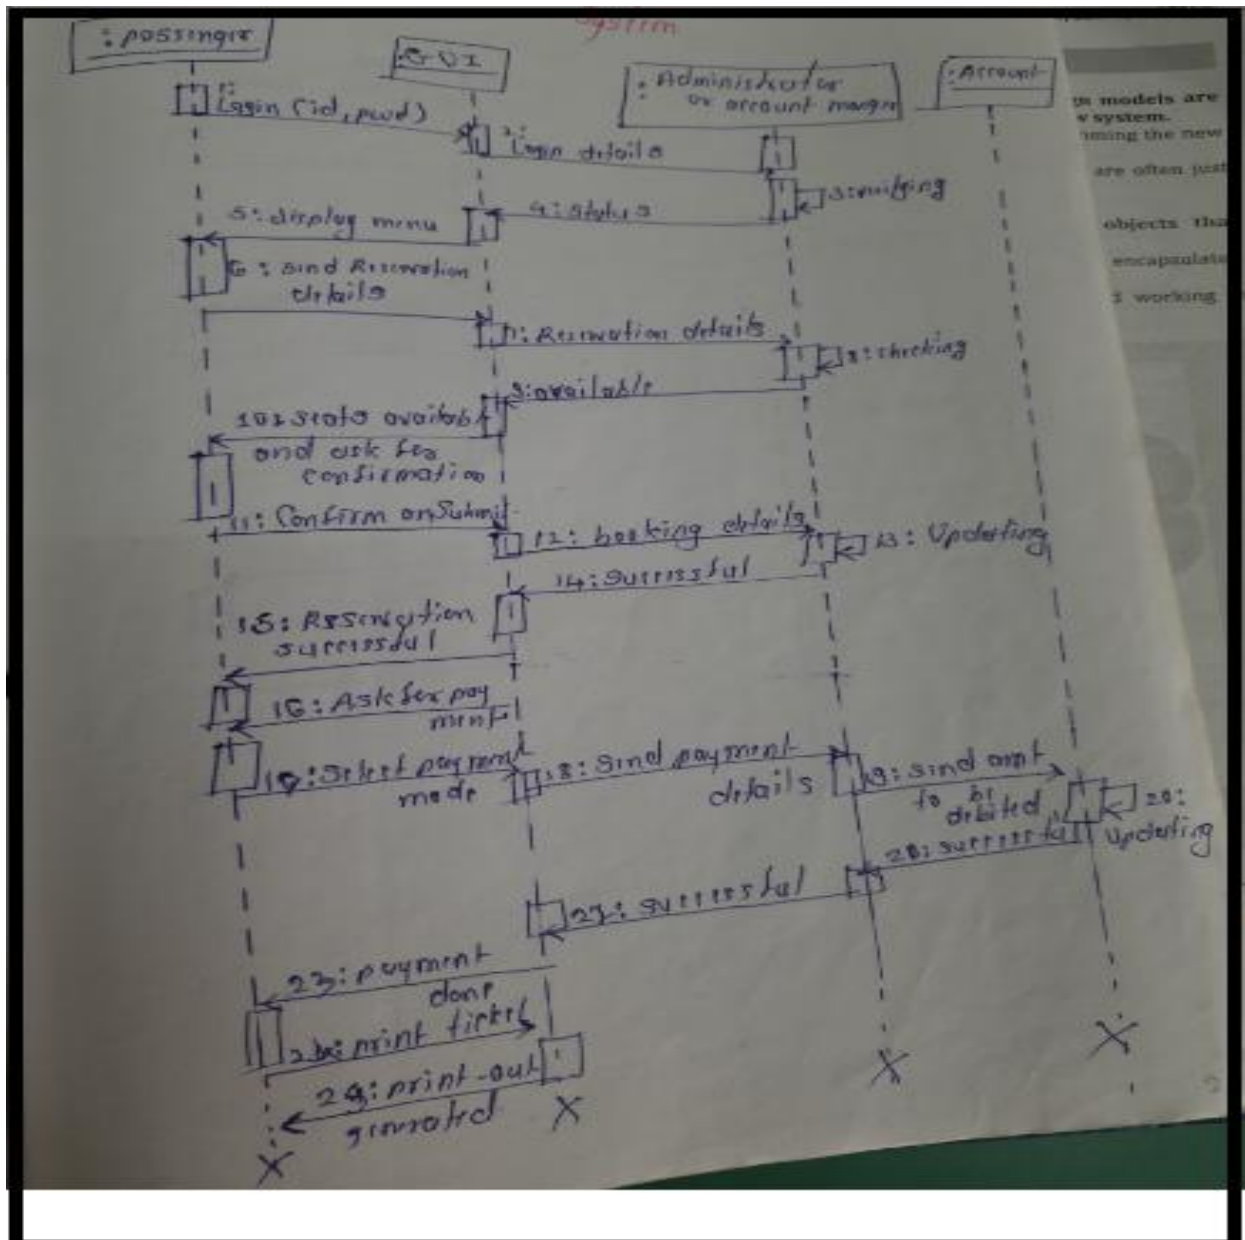 System
: passinger
: GUI
: Administrator
or account mangre
: Account
1:
Login (id, pwd)
2:
Login details
4: status
5: display menu
6: sind Reservation
details
7: Reservation details
8: checking
9: available
10: seats availabl
and ask for
confirmation
11: Confirm on Submit
12: booking details
13: Updating
14: Successful
15: Reservation
successful
16: Ask for pay
ment
Select payment
mode
18: Sind payment
details
19: Sind amt
to be
debited
20:
Updating
successful
successful
23: payment
done
print ticket
print-out
generated
gn models are
w system.
ming the new
are often just
objects tha
encapsulate
working